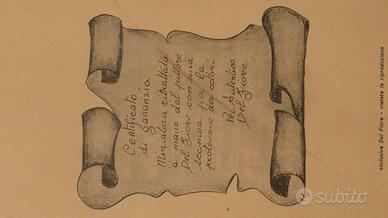 Certificato
di Garanzia
Miniatura ritrattata
a mano dal pittore
Del Fiore con una
tecnica per la
protezione dei colori
Per Autentica
Del Fiore
esclusiva Del Fiore - vietata la riproduzione
subito